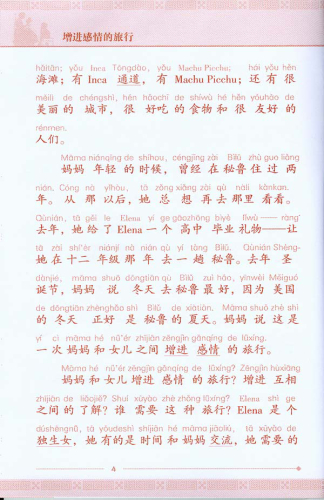 增进感情的旅行
hǎitān; yǒu Inca Tōngdào, yǒu Machu Picchu; hái yǒu hěn
海滩; 有 Inca 通道, 有 Machu Picchu; 还 有 很
měilì de chéngshì, hěn hǎochī de shíwù hé hěn yǒuhǎo de
美丽 的 城市, 很 好吃 的 食物 和 很 友好 的
rénmen.
人们。
Māma niánqīng de shíhou, céngjīng zài Bìlǔ zhù guo liǎng
妈妈 年轻 的 时候, 曾经 在 秘鲁 住 过 两
nián. Cóng nà yǐhòu, tā zǒng xiǎng zài qù nàli kànkan.
年。从 那 以后, 她 总 想 再 去 那里 看看。
Qùnián, tā gěi le Elena yí ge gāozhōng bìyè lǐwù——ràng
去年, 她 给 了 Elena 一 个 高中 毕业 礼物——让
tā zài shí'èr niánjí nà nián qù yí tàng Bìlǔ. Qùnián Shèng-
她 在 十二 年级 那 年 去 一 趟 秘鲁。去年 圣
dànjié, māma shuō dōngtiān qù Bìlǔ zuì hǎo, yīnwèi Měiguó
诞节, 妈妈 说 冬天 去 秘鲁 最好, 因为 美国
de dōngtiān zhènghǎo shì Bìlǔ de xiàtiān. Māma shuō zhè shì
的 冬天 正好 是 秘鲁 的 夏天。妈妈 说 这 是
yí cì māma hé nǚ'ér zhījiān zēngjìn gǎnqíng de lǚxíng.
一 次 妈妈 和 女儿 之间 增进 感情 的 旅行。
Māma hé nǚ'ér zēngjìn gǎnqíng de lǚxíng? Zēngjìn hùxiāng
妈妈 和 女儿 增进 感情 的 旅行? 增进 互相
zhījiān de liǎojiě? Shuí xūyào zhè zhǒng lǚxíng? Elena shì ge
之间 的 了解? 谁 需要 这 种 旅行? Elena 是 个
dúshēngnǚ, tā yǒudeshì shíjiān hé māma jiāoliú, tā xūyào de
独生女, 她 有的是 时间 和 妈妈 交流, 她 需要 的
4